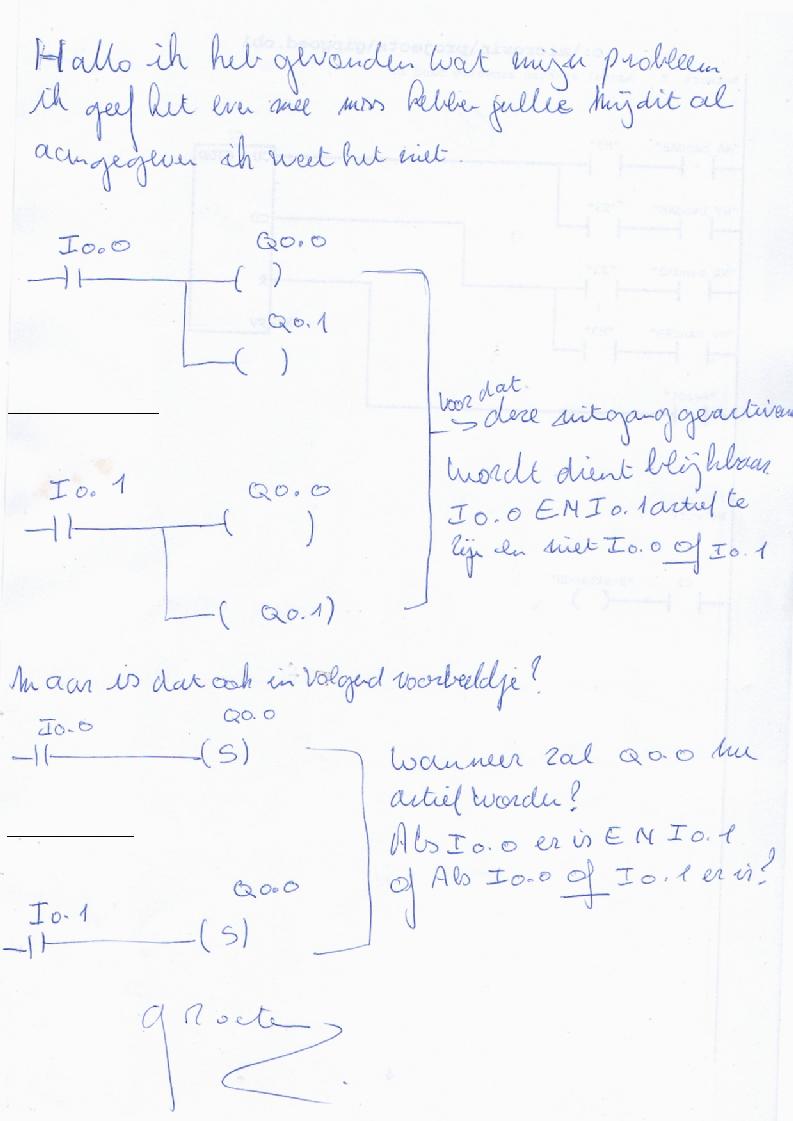 Hallo ik heb gevonden wat mijn probleem
ik geef het even mee miss hebben jullie mij dit al
aangegeven ik weet het niet.
I0.0
Q0.0
( )
Q0.1
( )
voor dat
deze uitgang geactiveerd
wordt dient blijkbaar
I0.0 EN I0.1 actief te
zijn en niet I0.0 of I0.1
I0.1
Q0.0
( )
( Q0.1)
Maar is dat ook in volgend voorbeeldje?
I0.0
Q0.0
(S)
Wanneer zal Q0.0 nu
actief worden?
Als I0.0 er is EN I0.1
of Als I0.0 of I0.1 er is?
I0.1
Q0.0
(S)
groeten